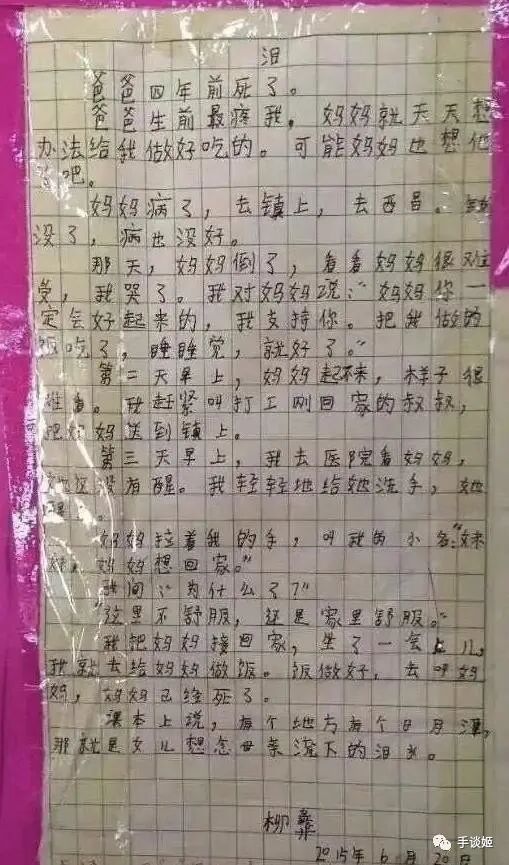 泪
爸爸四年前死了。
爸爸生前最疼我,妈妈就天天想
办法给我做好吃的。可能妈妈也想他
了吧。
妈妈病了,去镇上,去西昌。钱
没了,病也没好。
那天,妈妈倒了,看看妈妈很难
受,我哭了。我对妈妈说:“妈妈你一
定会好起来的,我支持你。把我做的
饭吃了,睡睡觉,就好了。”
第二天早上,妈妈起不来,样子很
难看。我赶紧叫打工刚回家的叔叔,
把妈妈送到镇上。
第三天早上,我去医院看妈妈,
她还没有醒。我轻轻地给她洗手,她
醒了。
妈妈拉着我的手,叫我的小名:“妹
妹,妈妈想回家。”
我问:“为什么了?”
“这里不舒服,还是家里舒服。”
我把妈妈接回家,坐了一会儿,
我就去给妈妈做饭。饭做好,去叫妈
妈,妈妈已经死了。
课本上说,有个地方有个日月潭,
那就是女儿想念母亲流下的泪水。
柳彝
2015年6月20日
手谈姬